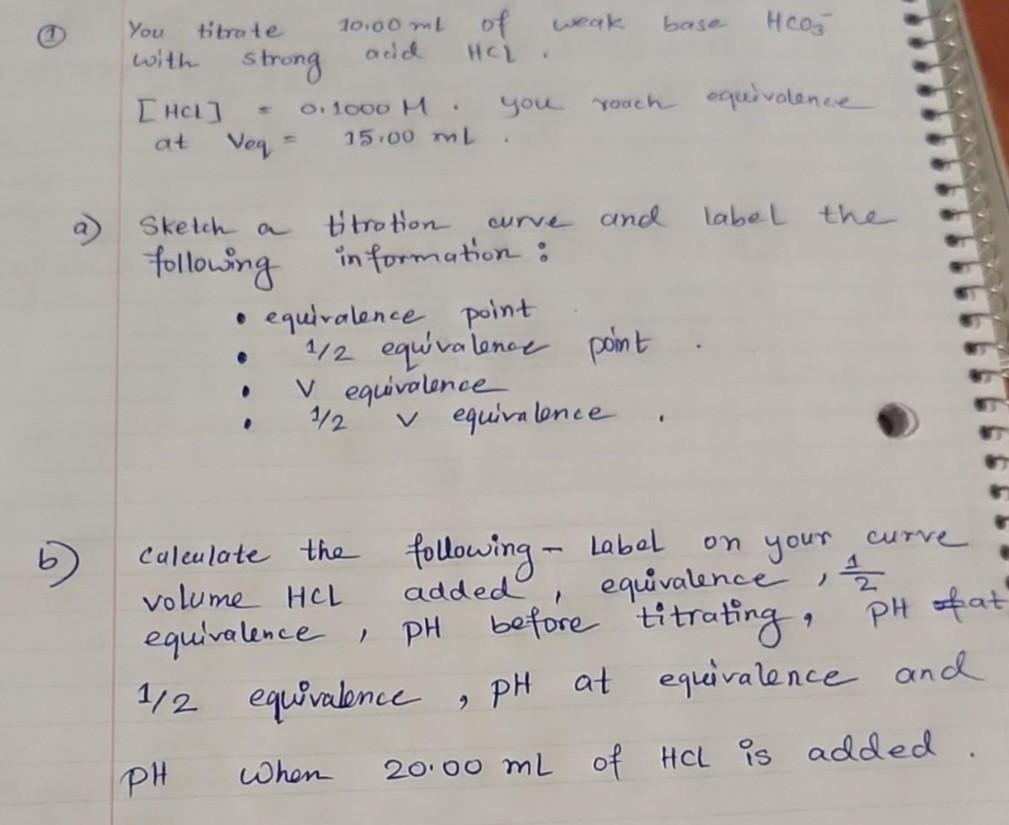 ① You titrate 10.00 ml of weak base HCO₃⁻
with strong acid HCl.
[HCl] = 0.1000 M. you reach equivalence
at Veq = 15.00 mL.
a) Sketch a titration curve and label the
following information :
• equivalence point
• 1/2 equivalence point.
• V equivalence
• 1/2 V equivalence.
b) Calculate the following - Label on your curve
volume HCL added, equivalence, 1/2
equivalence, pH before titrating, pH at
1/2 equivalence, pH at equivalence and
pH when 20.00 mL of HCl is added.